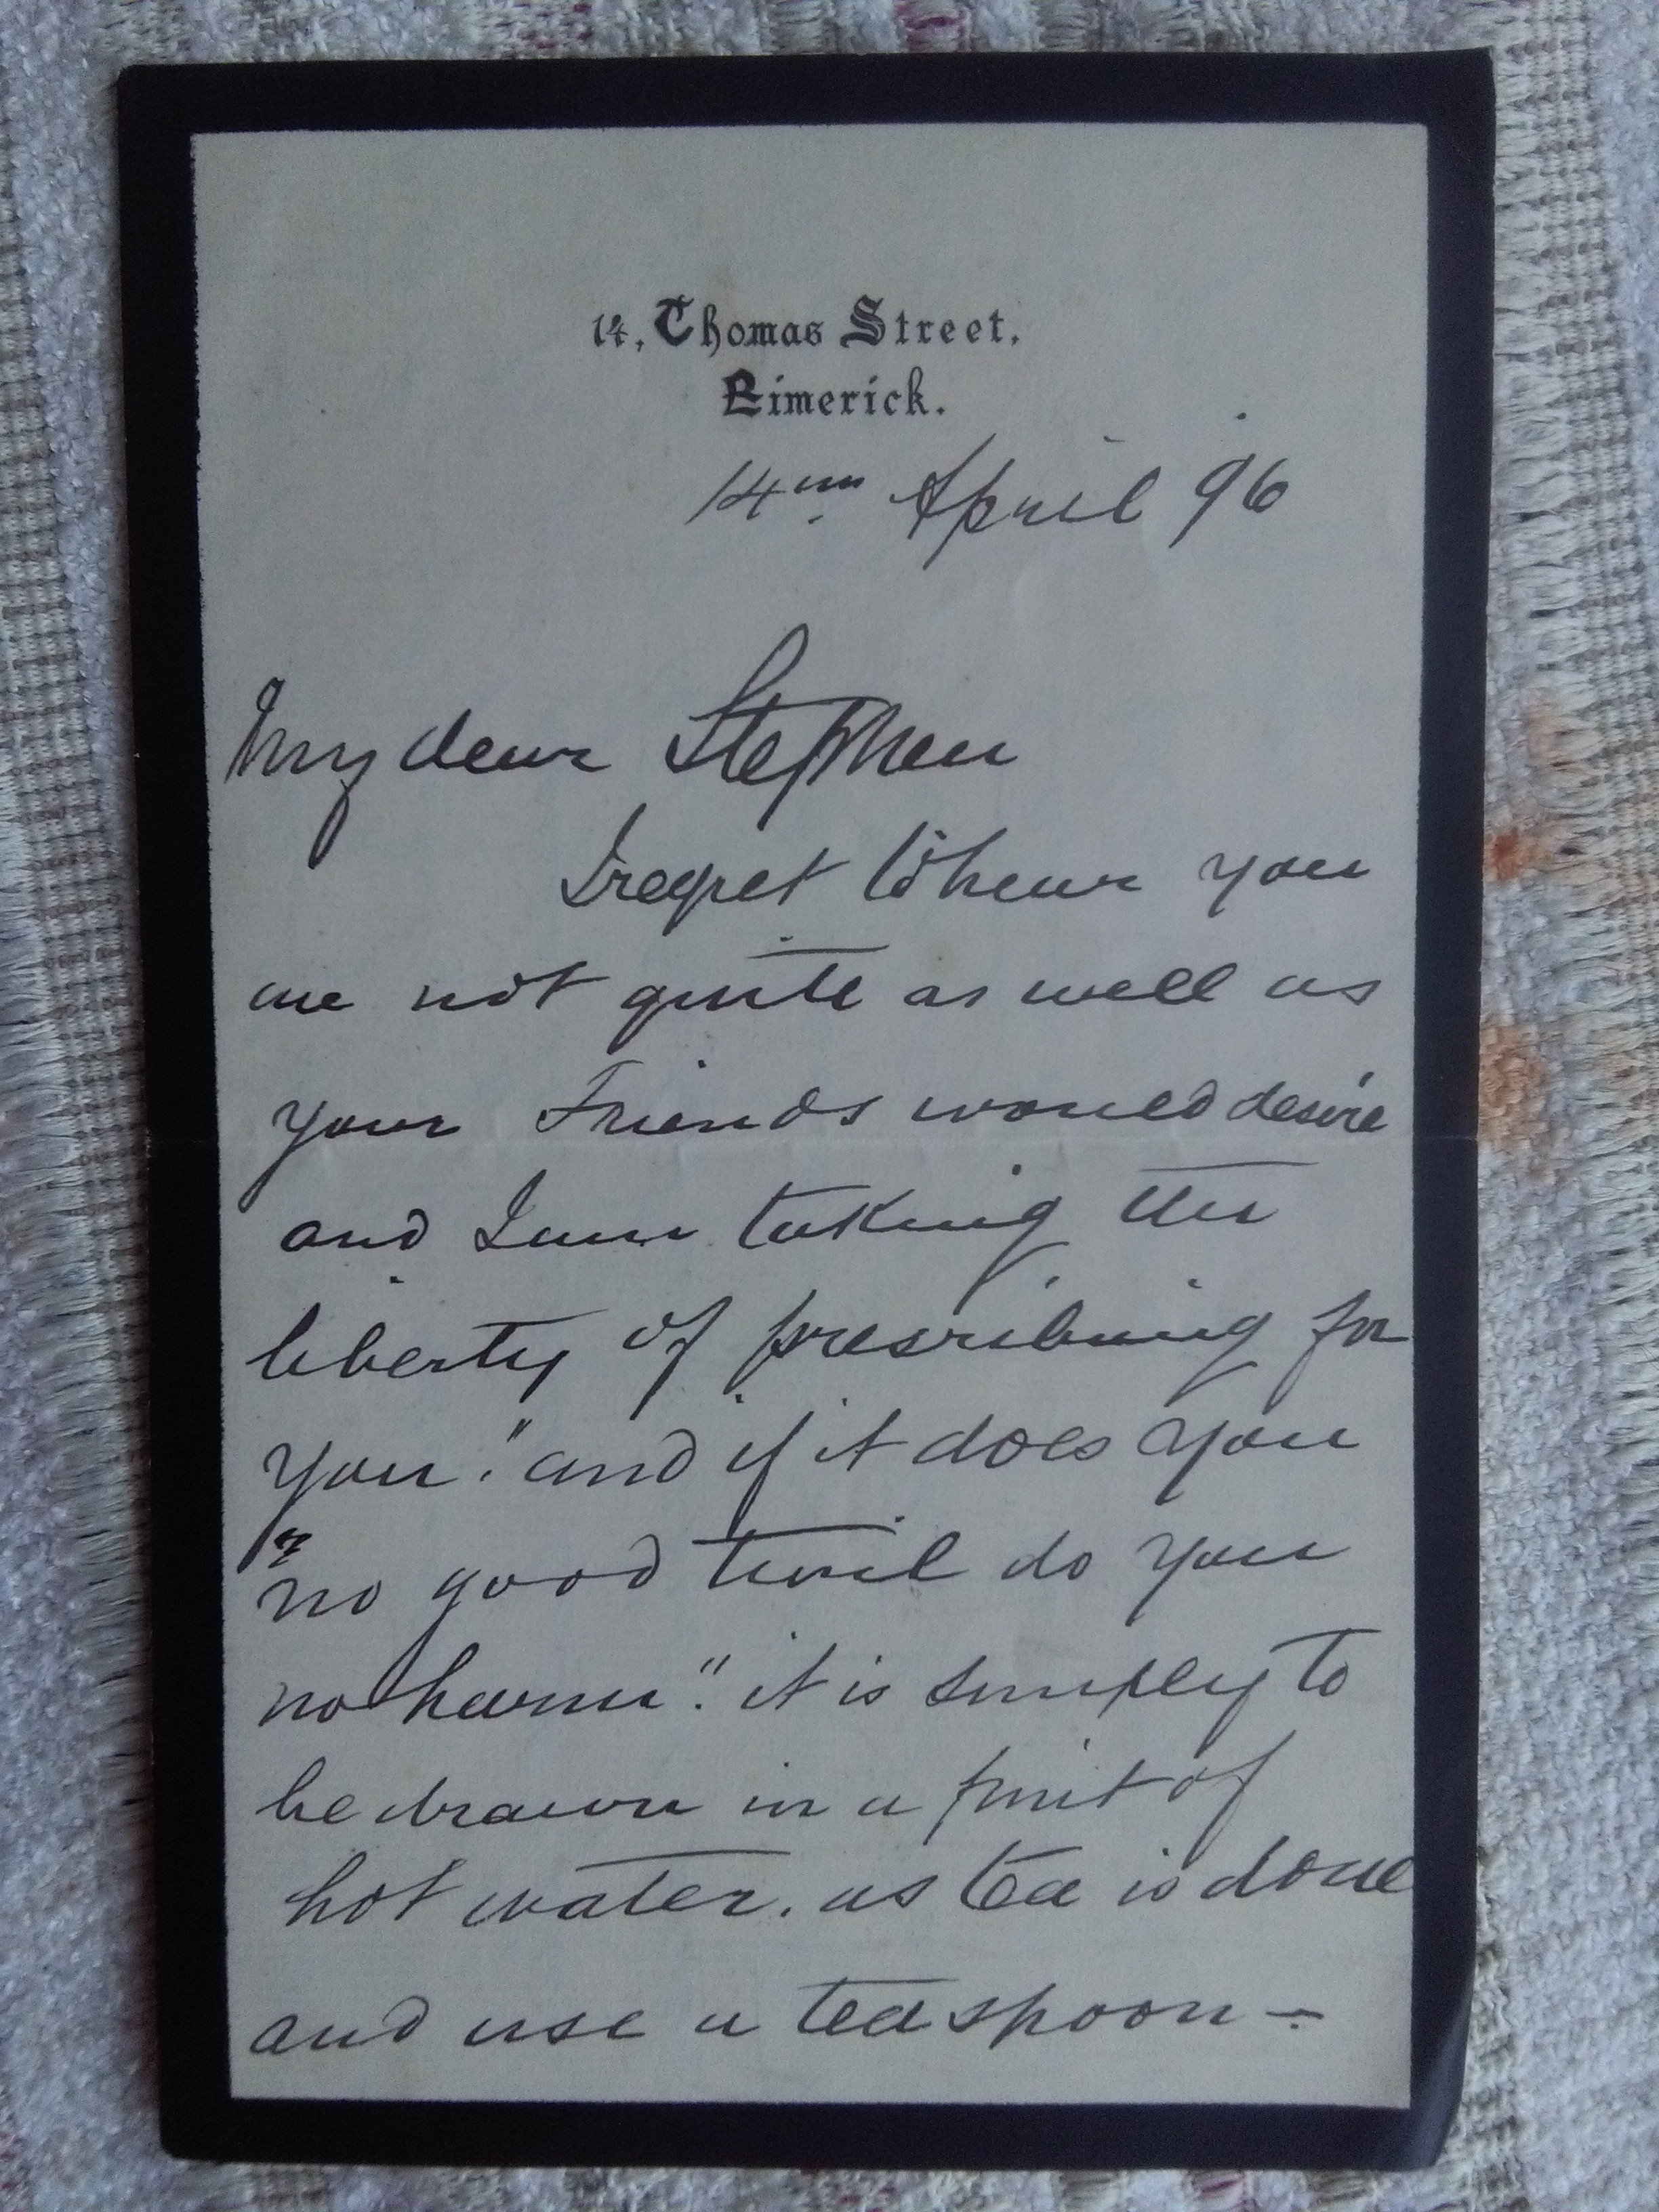 14, Thomas Street,
Limerick.
14th April 96
My dear Stephen
I regret to hear you
are not quite as well as
your Friends would desire
and I am taking the
liberty of prescribing for
you. "and if it does you
no good twil do you
no harm". it is simply to
be drawn in a pint of
hot water. as tea is done
and use a teaspoon -